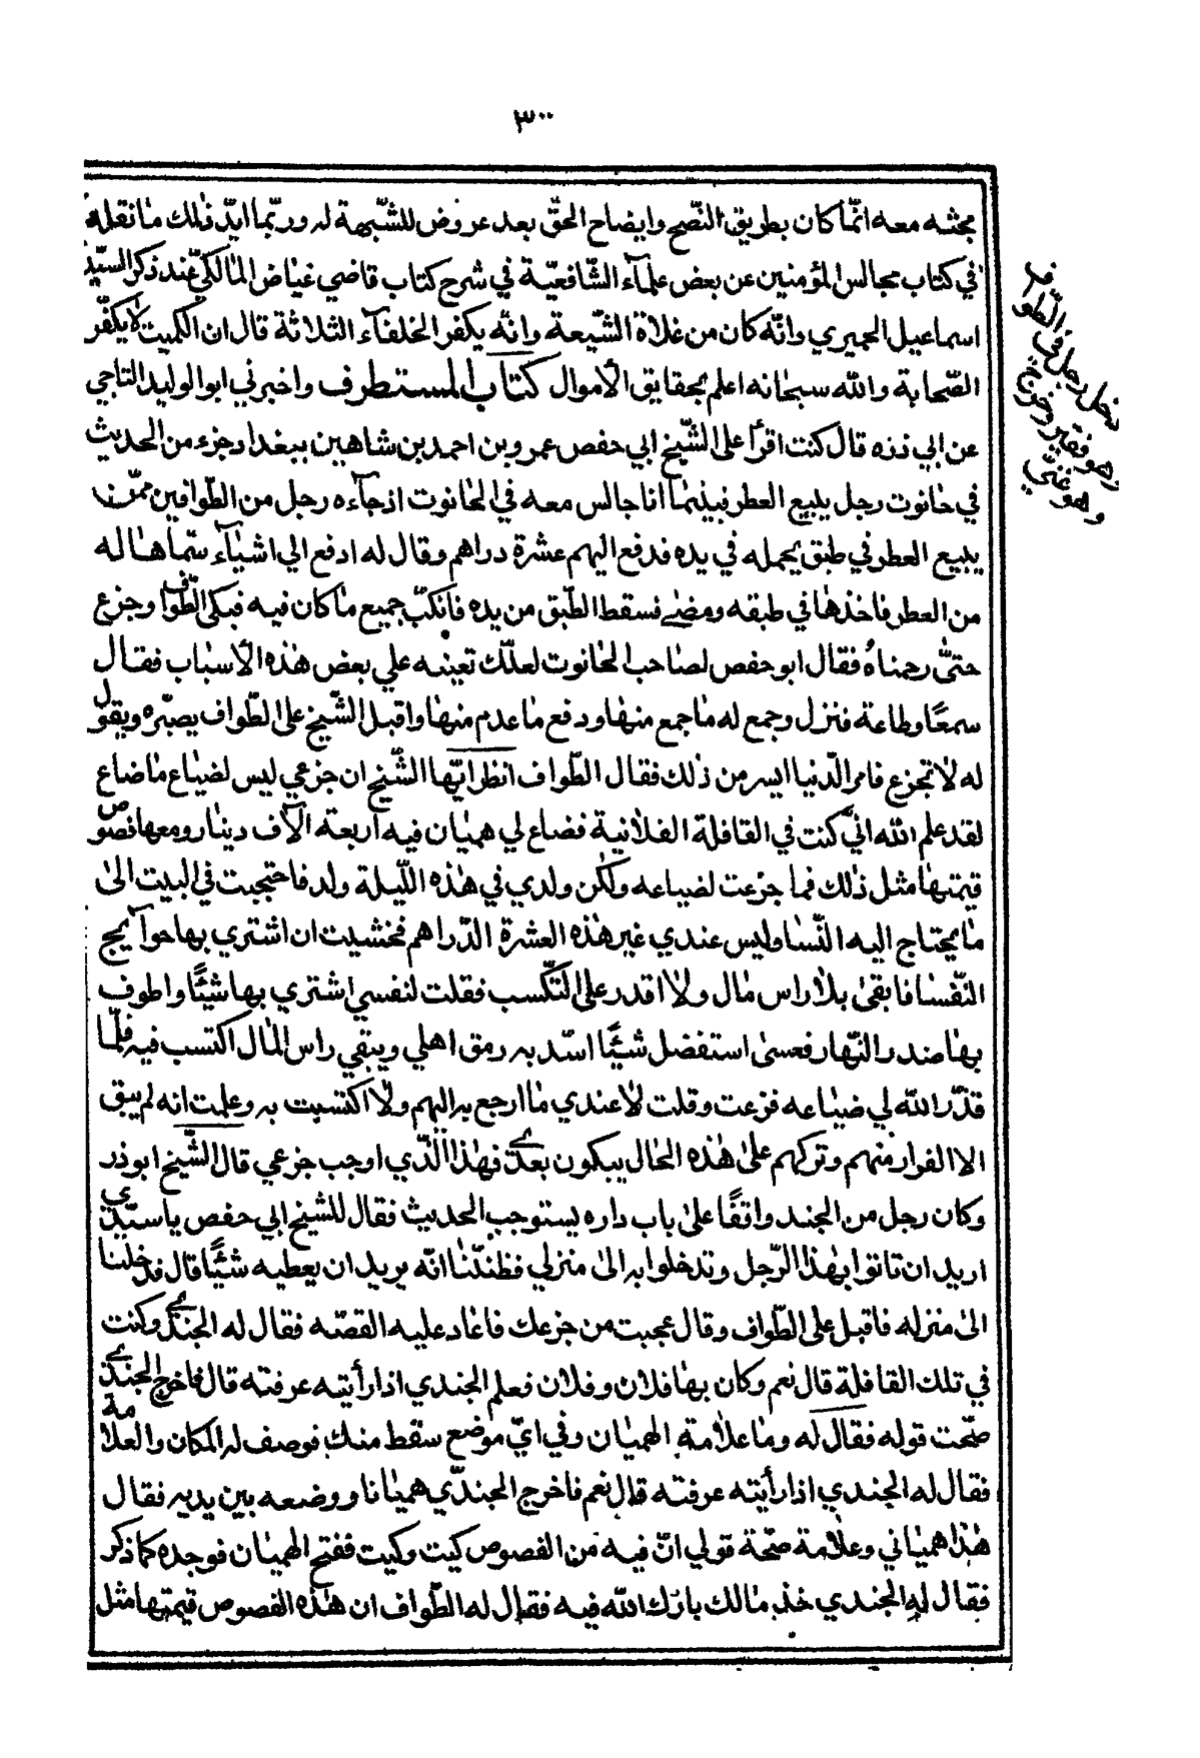 ٣٠٠
بحثه معه انّما كان بطريق النّصح وايضاح الحقّ بعد عروض للشّبهة له وربّما ايّد ذلك ما نقله
في كتاب مجالس المؤمنين عن بعض علمآء الشّافعيّة في شرح كتاب قاضي عياض المالكي عند ذكر السيّد
اسماعيل الحميري وانّه كان من غلاة الشّيعة وانّه يكفر الخلفآء الثلاثة قال ان الكميت لا يكفّر
الصّحابة والله سبحانه اعلم بحقايق الأموال كتاب المستطرف واخبرني ابو الوليد التاجي
عن ابي ذره قال كنت اقرأ على الشّيخ ابي حفص عمرو بن احمد بن شاهين ببغداد جزء من الحديث
في حانوت رجل يبيع العطر فبينما انا جالس معه في الحانوت اذ جآءه رجل من الطّوافين ممّن
يبيع العطر في طبق يحمله في يده فدفع اليهم عشرة دراهم وقال له ادفع الي اشيآء سمّاها له
من العطر فاخذها في طبقه ومضى فسقط الطّبق من يده فانكبّ جميع ما كان فيه فبكى الطّواف وجزع
حتّى رحمناه فقال ابو حفص لصاحب الحانوت لعلّك تعينه علي بعض هذه الأسباب فقال
سمعًا وطاعة فنزل وجمع له ما جمع منها ودفع ما عدم منها واقبل الشّيخ على الطّواف يصبّره ويقول
له لا تجزع فامر الدّنيا ايسر من ذلك فقال الطّواف انظر ايّها الشّيخ ان جزعي ليس لضياع ما ضاع
لقد علم الله انّي كنت في القافلة الفلانية فضاع لي هميان فيه اربعة الآف دينار ومعها فصوص
قيمتها مثل ذلك فما جزعت لضياعه ولكن ولدي في هذه اللّيلة ولد فاحتجبت في البيت الى
ما يحتاج اليه النّسا وليس عندي غير هذه العشرة الدّراهم فخشيت ان اشتري بها حوآيج
النّفسا فابقى بلا راس مال ولا اقدر على التكّسب فقلت لنفسي اشتري بها شيئًا واطوف
بها صدر النّهار فعسى استفضل شيئًا اسّد به رمق اهلي ويبقي راس المال اكتسب فيه فلمّا
قدّر الله لي ضياعه فزعت وقلت لا عندي ما ارجع به اليهم ولا اكتسبت به وعلمت انه لم يبق
الا الفرار منهم وتركهم على هذه الحال يبكون بعدي فهذا الّذي اوجب جزعي قال الشّيخ ابو ذر
وكان رجل من الجند واقفًا على باب داره يستوجب الحديث فقال للشيخ ابي حفص يا سيّدي
اريد ان تاتوا بهذا الرّجل وتدخلوا به الى منزلي فظنّنا انّه يريد ان يعطيه شيئًا قال فدخلنا
الى منزله فاقبل على الطّواف وقال عجبت من جزعك فاعاد عليه القصّه فقال له الجندي وكنت
في تلك القافلة قال نعم وكان بها فلان وفلان فعلم الجندي اذا رأيته عرفته قال فاخرج الجندي
صحّت قوله فقال له وما علامة الهميان وفي ايّ موضع سقط منك فوصف له المكان والعلامة
فقال له الجندي اذا رأيته عرفته قال نعم فاخرج الجندّي هميانا ووضعه بين يديه فقال
هذا همياني وعلامة صحّة قولي انّ فيه من الفصوص كيت وكيت ففتح الهميان فوجده كما ذكر
فقال له الجندي خذ مالك بارك الله فيه فقال له الطّواف ان هذه الفصوص قيمتها مثل
دخل رجل في الطّواف
وهو فقير وخرج
وهو غنيّ